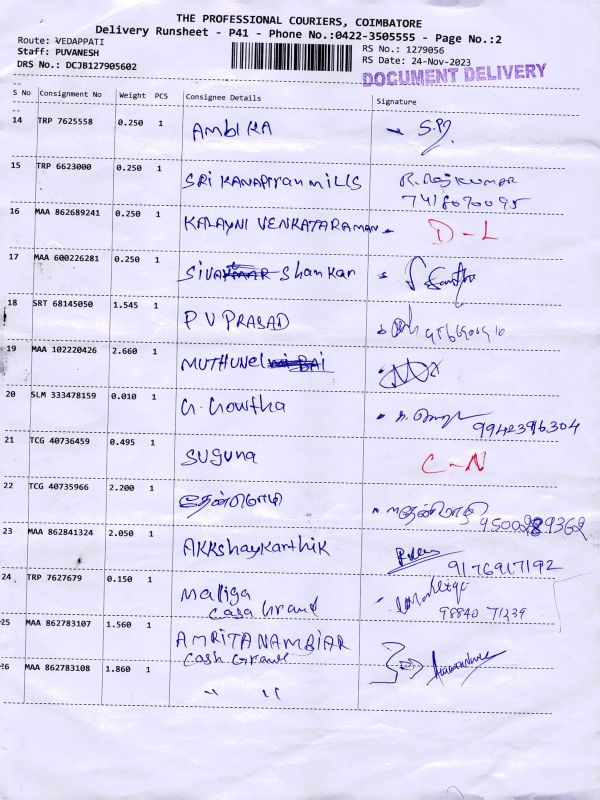 THE PROFESSIONAL COURIERS, COIMBATORE
Delivery Runsheet - P41 - Phone No.:0422-3505555 - Page No.:2
Route: VEDAPPATI
RS No.: 1279056
Staff: PUVANESH
RS Date: 24-Nov-2023
DRS No.: DCJB127905602
DOCUMENT DELIVERY
S No Consignment No Weight PCS Consignee Details Signature
14 TRP 7625558 0.250 1 AMBIKA
15 TRP 6623000 0.250 1 SRI KANAPIRAN MILLS R. Rajkumar
7418070095
16 MAA 862689241 0.250 1 KALAYNI VENKATARAMAN D-L
17 MAA 600226281 0.250 1 SIVA Shankar
18 SRT 68145050 1.545 1 P V PRASAD
19 MAA 102220426 2.660 1 MUTHUNEL
20 SLM 333478159 0.010 1 G. Gowtha
9942396304
21 TCG 40736459 0.495 1 Suguna C-N
22 TCG 40735966 2.200 1 தேன்மொழி
9500289362
23 MAA 862841324 2.050 1 AKKshayKarthik
9176917192
24 TRP 7627679 0.150 1 Maliga
Casa Grand 98840 71239
25 MAA 862783107 1.560 1 AMRITA NAMBIAR
Cash Grand
26 MAA 862783108 1.860 1 " "